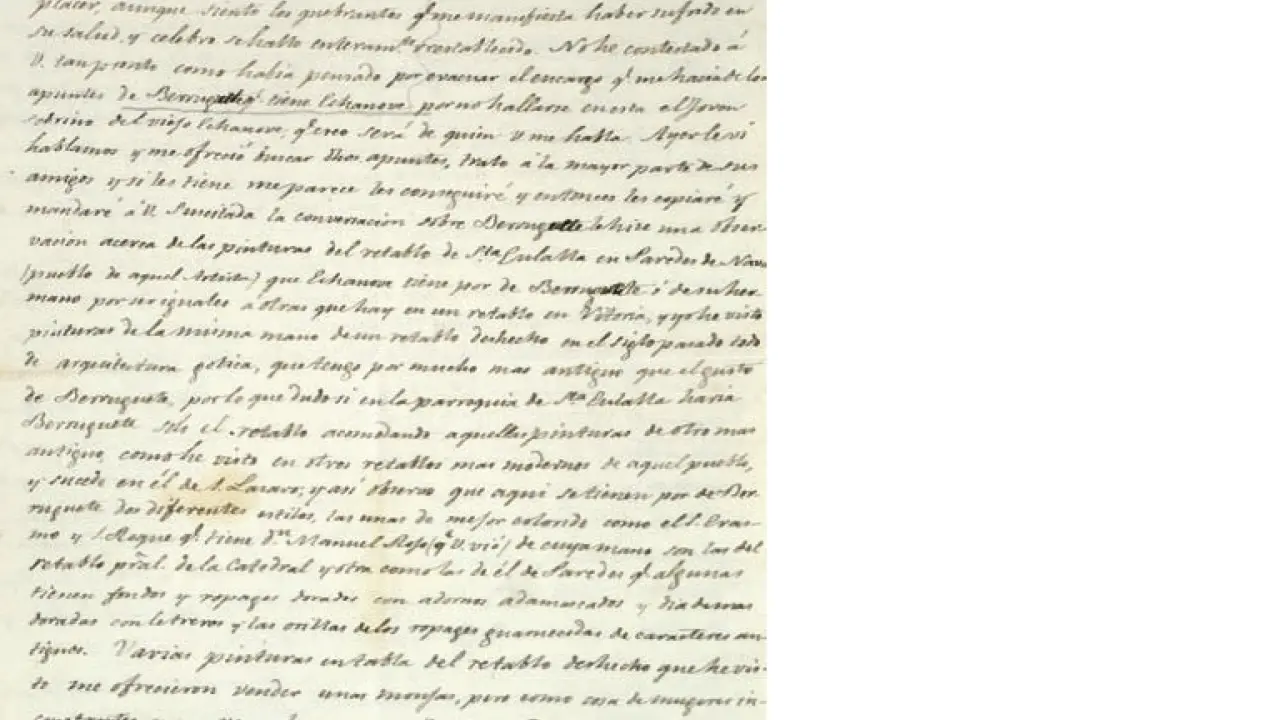 placer, aunque siento los quebrantos q.e me manifiesta haber sufrido en
su salud, y celebro se halle enteram.te restablecido. No he contestado á
V. tan pronto como habia pensado por evacuar el encargo q.e me hacia de los
apuntes de Berruguete q.e tiene Echanove por no hallarse en esta el Joven
sobrino del viejo Echanove, q.e creo será de quien V. me habla. Ayer le vi
hablamos y me ofreció buscar dhos apuntes, trato á la mayor parte de sus
amigos y si los tiene me parece los conseguiré y entonces los copiaré y
mandaré á V. Suscitada la conversacion sobre Berruguete le hice una obser-
vacion acerca de las pinturas del retablo de S.ta Eulalia en Paredes de Nava
(pueblo de aquel Artista) que Echanove tiene por de Berruguete ó de su her-
mano por ser iguales á otras que hay en un retablo en Vitoria, y yo he visto
pinturas de la misma mano de un retablo deshecho en el siglo pasado todo
de arquitectura gotica, que tengo por mucho mas antiguo que el gusto
de Berruguete, por lo que dudo si en la parroquia de S.ta Eulalia haria
Berruguete solo el retablo acomodando aquellas pinturas de otro mas
antiguo, como he visto en otros retablos mas modernos de aquel pueblo,
y sucede en él de S. Lazaro, y asi observo que aqui se tienen por de Ber-
ruguete dos diferentes estilos, las unas de mejor colorido como el S. Eras-
mo y S. Roque q.e tiene d.n Manuel Rojo (q.e V. vió) de cuya mano son las del
retablo pral. de la Catedral y otra como las de él de Paredes q.e algunas
tienen fondos y ropages dorados con adornos adamascados y diademas
doradas con letreros y las orillas de los ropages guarnecidas de caracteres an-
tiguos. Varias pinturas en tabla del retablo deshecho que he vis-
to me ofrecieron vender unas monjas, pero como cosa de mugeres in-